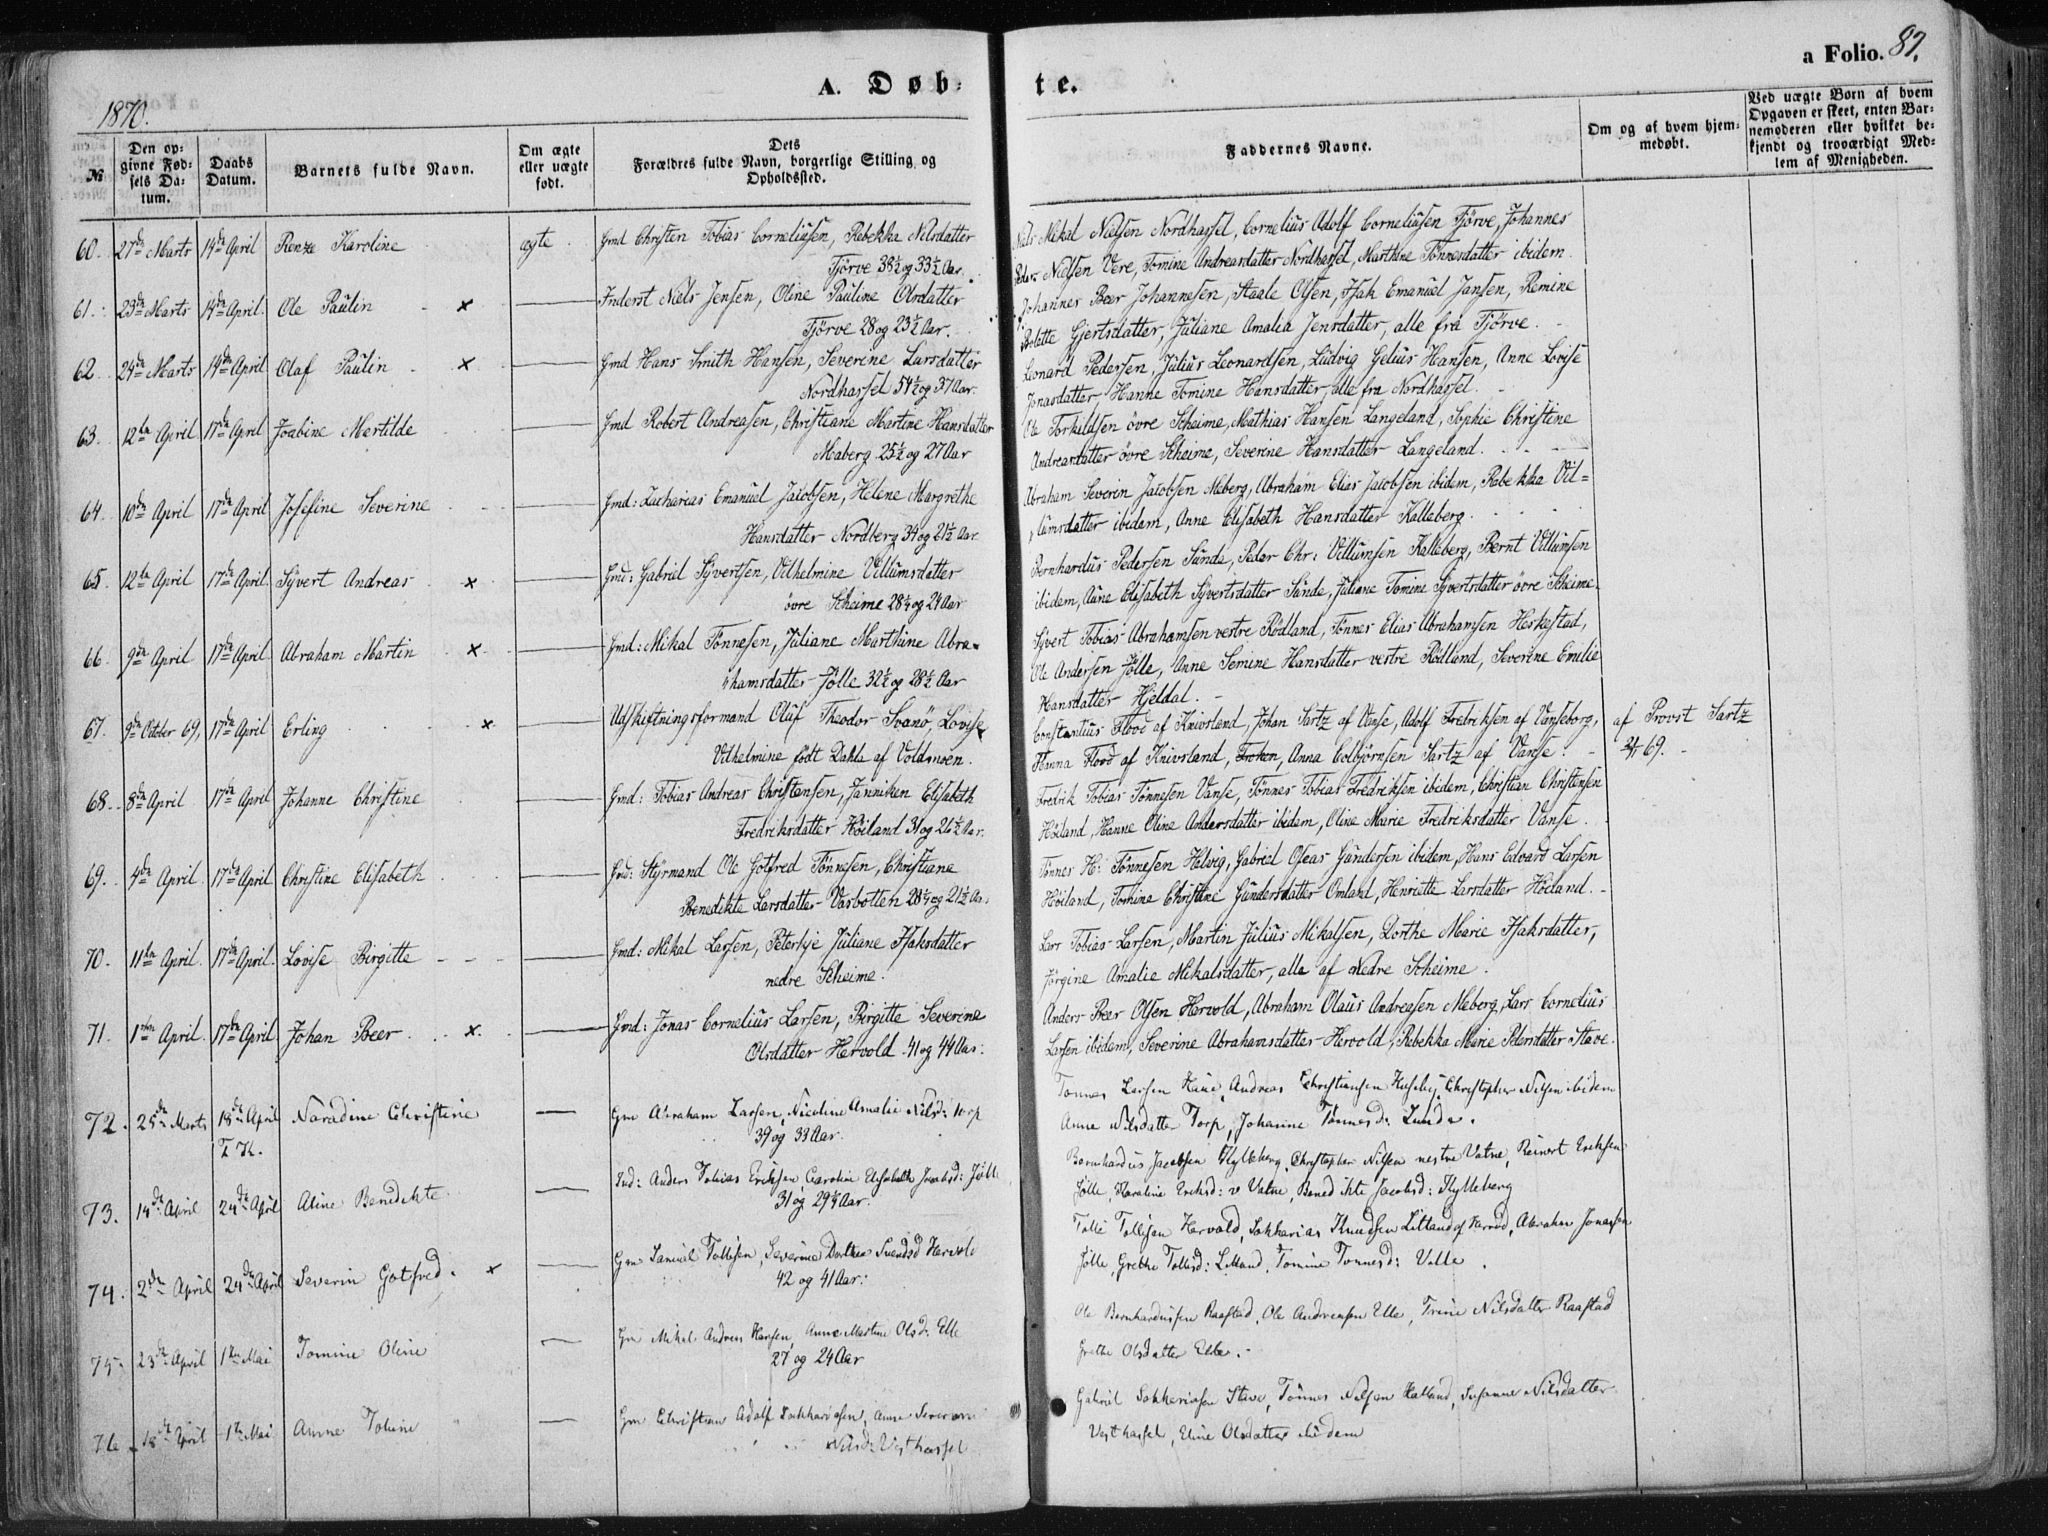 1870.
A. Døb-
te.
a Folio. 87.
№
Den op-
givne Fød-
sels Da-
tum.
Daabs
Datum.
Barnets fulde Navn.
Om ægte
eller uægte
født.
Dets
Forældres fulde Navn, borgerlige Stilling og
Opholdssted.
Faddernes Navne.
Om og af hvem hjem-
medøbt.
Ved uægte Børn af hvem
Opgaven er skeet, enten Bar-
nemoderen eller hvilket be-
kjendt og troværdigt Med-
lem af Menigheden.
60. 27de Marts 14de April Renze Karoline ægte Gmd Christen Tobias Corneliusen, Rebekka Nilsdatter
Tjörve 38½ og 33½ Aar.
Niels Mikal Nielsen Nordhassel, Cornelius Adolf Corneliusen Tjörve, Johannes
Peder Nielsen Vere, Tomine Andreasdatter Nordhassel, Marthine Tönnesdatter ibidem.
61. 23de Marts 14de April. Ole Paulin × Inderst Niels Jensen, Oline Pauline Olsdatter
Tjörve 28 og 23½ Aar.
Johannes Beer Johannesen, Staale Olsen, Isak Emanuel Jansen, Remine
Bolette Gjertsdatter, Juliane Amalia Jensdatter, alle fra Tjörve.
62. 24de Marts 14de April Olaf Paulin × Gmd Hans Smith Hansen, Severine Larsdatter
Nordhassel 54½ og 37 Aar.
Leonard Pedersen, Julius Leonardsen, Ludvig Gelius Hansen, Anne Lovise
Jonasdatter, Hanne Tomine Hansdatter, alle fra Nordhassel.
63. 12te April 17de April Joabine Mertilde Gmd Robert Andreasen, Christiane Martine Hansdatter
Maberg 25½ og 27 Aar
Ole Torkildsen övre Skeime, Mathias Hansen Langeland, Sophie Christine
Andreasdatter övre Skeime, Severine Hansdatter Langeland.
64. 10de April 17de April Josefine Severine Gmd: Zacharias Emanuel Jacobsen, Helene Margrethe
Hansdatter Nordberg 34 og 21½ Aar
Abraham Severin Jacobsen Meberg, Abraham Elias Jacobsen ibidem, Rebekka Vil=
lumsdatter ibidem, Anne Elisabeth Hansdatter Kalleberg.
65. 12te April 17de April. Syvert Andreas × Gmd: Gabriel Syvertsen, Vilhelmine Villumsdatter
övre Skeime 28¼ og 24 Aar
Bernhardus Pedersen Sunde, Peder Chr: Villumsen Kalleberg, Bernt Villumsen
ibidem, Anne Elisabeth Syvertsdatter Sunde, Juliane Tomine Syvertsdatter övre Skeime.
66. 9de April 17de April Abraham Martin × Gmd: Mikal Tönnesen, Juliane Marthine Abra=
hamsdatter Jölle 32½ og 28½ Aar
Syvert Tobias Abrahamsen vestre Rödland, Tönnes Elias Abrahamsen Heskestad,
Ole Andersen Jölle, Anne Semine Hansdatter vestre Rödland, Severine Emilie
Hansdatter Hjeldal.
67. 9de October 69, 17de April Erling × Udskiftningsformand Oluf Theodor Svanö, Lovise
Vilhelmine födt Dahla af Voldmoen.
Constantius Flood af Knivsland, Johan Sartz af Vanse, Adolf Fredriksen af Vanseborg,
Hanna Flood af Knivsland, Froken, Anna Colbjörnsen Sartz af Vanse.
af Provst Sartz
69.
68. 8de April 17de April Johanne Christine Gmd: Tobias Andreas Christensen, Janniken Elisabeth
Fredriksdatter Höiland 31 og 26½ Aar.
Fredrik Tobias Tönnesen Vanse, Tönnes Tobias Fredriksen ibidem, Christian Christensen
Höiland, Hanne Oline Andersdatter ibidem, Oline Marie Fredriksdatter Vanse.
69. 4de April 17de April Christine Elisabeth Gmd: Styrmand Ole Gotfred Tönnesen, Christiane
Benedikte Larsdatter Vasbotten 28¼ og 21½ Aar.
Tönnes H: Tönnesen Helvig, Gabriel Oseas Gundersen ibidem, Hans Edvard Larsen
Höiland, Tomine Christine Gundersdatter Omland, Henriette Larsdatter Höiland.
70. 11te April. 17de April. Lovise Birgitte Gmd: Mikal Larsen, Petersje Juliane Isaksdatter
nedre Skeime.
Lars Tobias Larsen, Martin Julius Mikalsen, Dorthe Marie Isaksdatter,
Jörgine Amalie Mikalsdatter, alle af Nedre Skeime.
71. 1ste April 17de April Johan Beer × Gmd: Jonas Cornelius Larsen, Birgitte Severine
Olsdatter Hervold 41 og 44 Aar:
Anders Beer Olsen Hervold, Abraham Olaus Andreasen Meberg, Lars Cornelius
Larsen ibidem, Severine Abrahamsdatter Hervold, Rebekka Marie Pedersdatter Stave.
72. 25de Marts 18de April Naradine Christine Gm Abraham Larsen, Nicoline Amalie Nilsd: Torp
39 og 33 Aar.
Tonnes Larsen Haue, Andreas Christiansen Huseby, Christopher Nilsen ibidem
Anne Nilsdatter Torp, Johanne Tönnesd: Lunde.
73. 14de April 24de April Aline Benedikte Ind: Anders Tobias Eriksen Caroline Elisabeth Jacobsd: Jölle
31 og 29¼ Aar.
Bernhardus Jacobsen Hylleberg, Christopher Nilsen vestre Vatne, Reinert Eriksen
Jölle, Karoline Eriksd: v Vatne, Benedikte Jacobsd: Hylleberg
74. 2de April 24de April Severin Gotfred. × Gm Samuel Tollisen, Severine Dorthea Svendsd Hervold
42 og 41 Aar:
Tolle Tollisen Hervold, Sakharias Knudsen Litland af Herrod, Abraham Jonassen
Jölle, Grethe Tollisd: Litland, Tomine Tonnesd: Velle.
75. 23de April 1ste Mai Tomine Oline Gm Mikal Andreas Hansen, Anne Martine Olsd: Elle
27 og 24 Aar
Ole Bernhardussen Raastad, Ole Andreasen Elle, Trine Nilsdatter Raastad
Grethe Olsdatter Elle.
76. 18de April 1ste Mai Anne Tobine Gm Christian Adolf Sakhariasen, Anne Severine
Nilsd: Vesthassel
Gabriel Sakkeriasen Stave, Tönnes Nilsen Hatland, Susanne Nilsdatter
Vesthassel, Eline Olsdatter ibidem